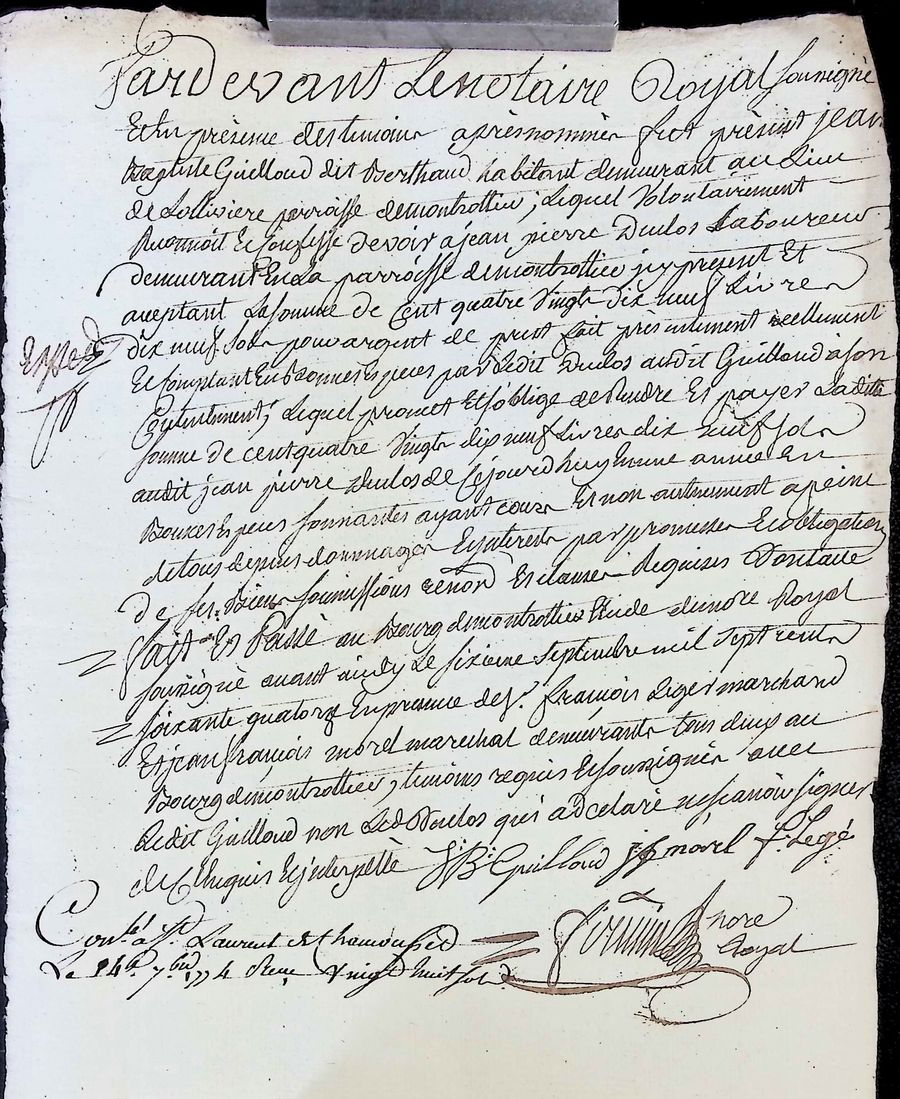 Pardevant Le notaire Royal soussigné
Et En présence des temoins après nommés fut présent jean
Baptiste Guilloud dit Berthaud habitant demeurant au Lieu
de Lollivière parroisse de montrottier, Lequel Volontairement
Reconnoit Et Confesse devoir a jean pierre Duclos Laboureur
demeurant En La parroisse de montrottier icy présent Et
acceptant La somme de Cent quatre Vingts dix neuf Livres
dix neuf sols pour argent de prest fait présentement réellement
Et Comptant En Bonnes Especes par Ledit Duclos audit Guilloud à son
Contentement, Lequel promet Et s'oblige de Rendre Et payer Ladite
somme de cent quatre Vingts dix neuf Livres dix neuf sols
audit jean pierre Duclos de Cejourd'huy En une année En
Bonnes Especes sonnantes ayant cours Et non autrement a peine
de tous depens dommages Et interets par promesses Et obligation
de ses Biens soumissions renon. Et clauses Requises Dont acte
fait Et Passé au Bourg de montrottier Etude du nore Royal
soussigné avant midy Le sixieme Septembre mil sept cents
soixante quatorze En presence de sr. françois Leger marchand
Et jean françois morel marechal demeurants tous deux au
Bourg de montrottier, temoins requis Et soussignés avec
Ledit Guilloud non Led. Duclos qui a declaré ne scavoir signer
de Ce Enquis Et interpellé JB. Guilloud jf morel f. Legé
Conlé. à St. Laurent de Chamousset
nore
Royal
Le 14e. 7bre 1774 Reçu Vingt huit sols